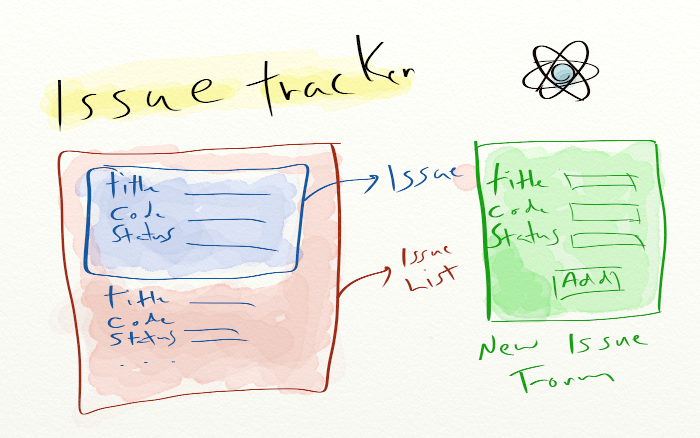 Issue tracker
title
code
status
title
code
status
...
Issue
Issue
List
title
code
status
Add
New Issue
Form